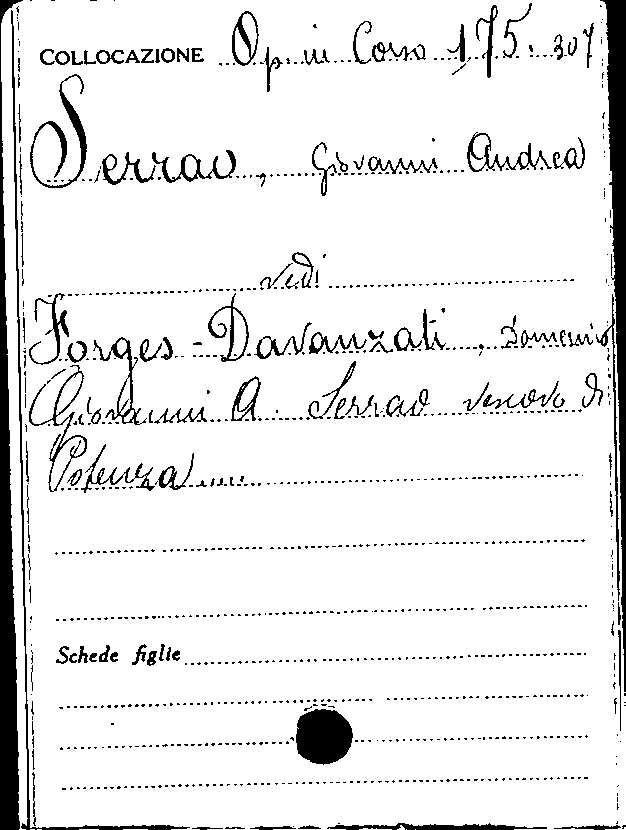 COLLOCAZIONE Op. in Corso 175. 307
Serrao, Giovanni Andrea
vedi
Forges-Davanzati, Domenico
Giovanni A. Serrao vescovo di
Potenza.....
Schede figlie